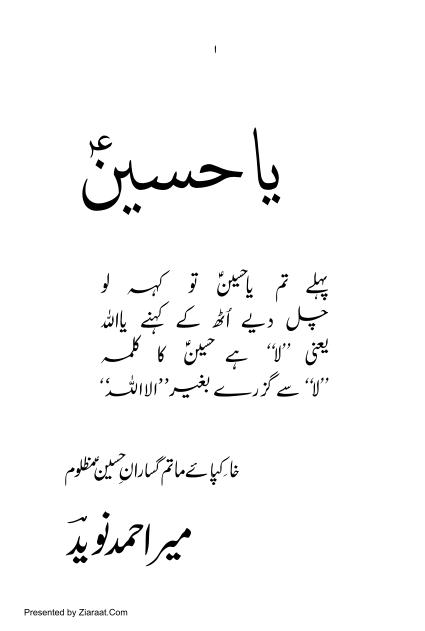 ۱
یا حسینؑ
پہلے تم یا حسینؑ تو کہہ لو
چل دیے اُٹھ کے کہنے یااللہ
یعنی ’’لا‘‘ ہے حسینؑ کا کلمہ
’’لا‘‘ سے گزرے بغیر ’’الااللہ‘‘
خاکِپائے ماتم گسارانِ حسینؑ مظلوم
میر احمد نویدؔ
Presented by Ziaraat.Com